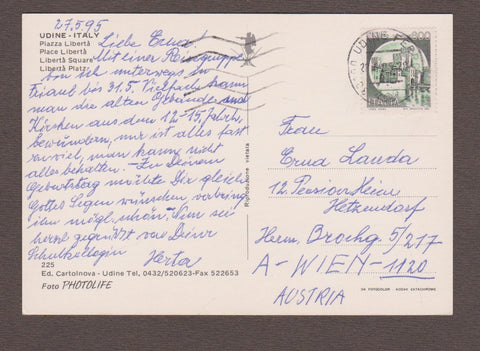 27.5.95
UDINE - ITALY
Piazza Libertà
Place Liberté
Liberty Square
Libertà Platz
Liebe Erna!
Mit einer Reisegruppe
bin ich unterwegs in
Friaul bis 31.5. Vielfach kann
man die alten Gebäude und
Kirchen aus dem 12.-15. Jahrh.
bewundern, mir ist alles fast
zuviel, man kann nicht
alles behalten. - Zu Deinem
Geburtstag möchte Dir gleich
Gottes Segen wünschen
herzl. gegrüßt von Deiner
Schulkollegin
Herta
225
Ed. Cartolnova - Udine Tel. 0432/520623-Fax 522653
Foto PHOTOLIFE
Riproduzione vietata
Frau
Erna Landa
12. Pensionsheim
Hetzendorf
Herm. Brochg. 5/217
A-WIEN-1120
AUSTRIA